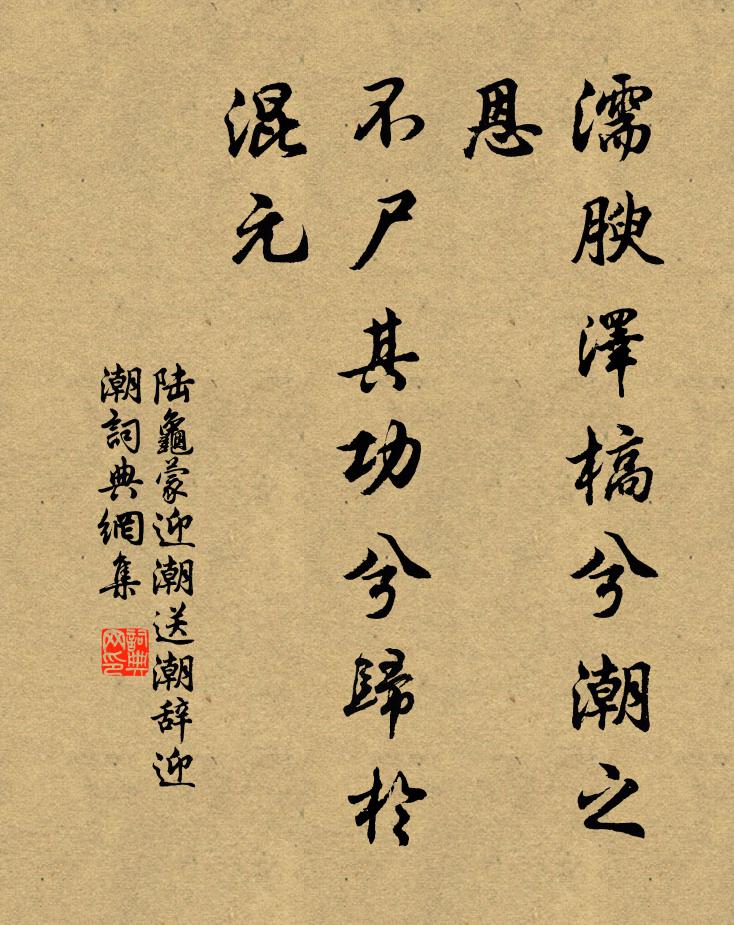 濡腴澤槁兮潮之
恩
不尸其功兮歸於
混元
陆龜蒙迎潮送潮辞迎
潮詞典網集
詞典
网印